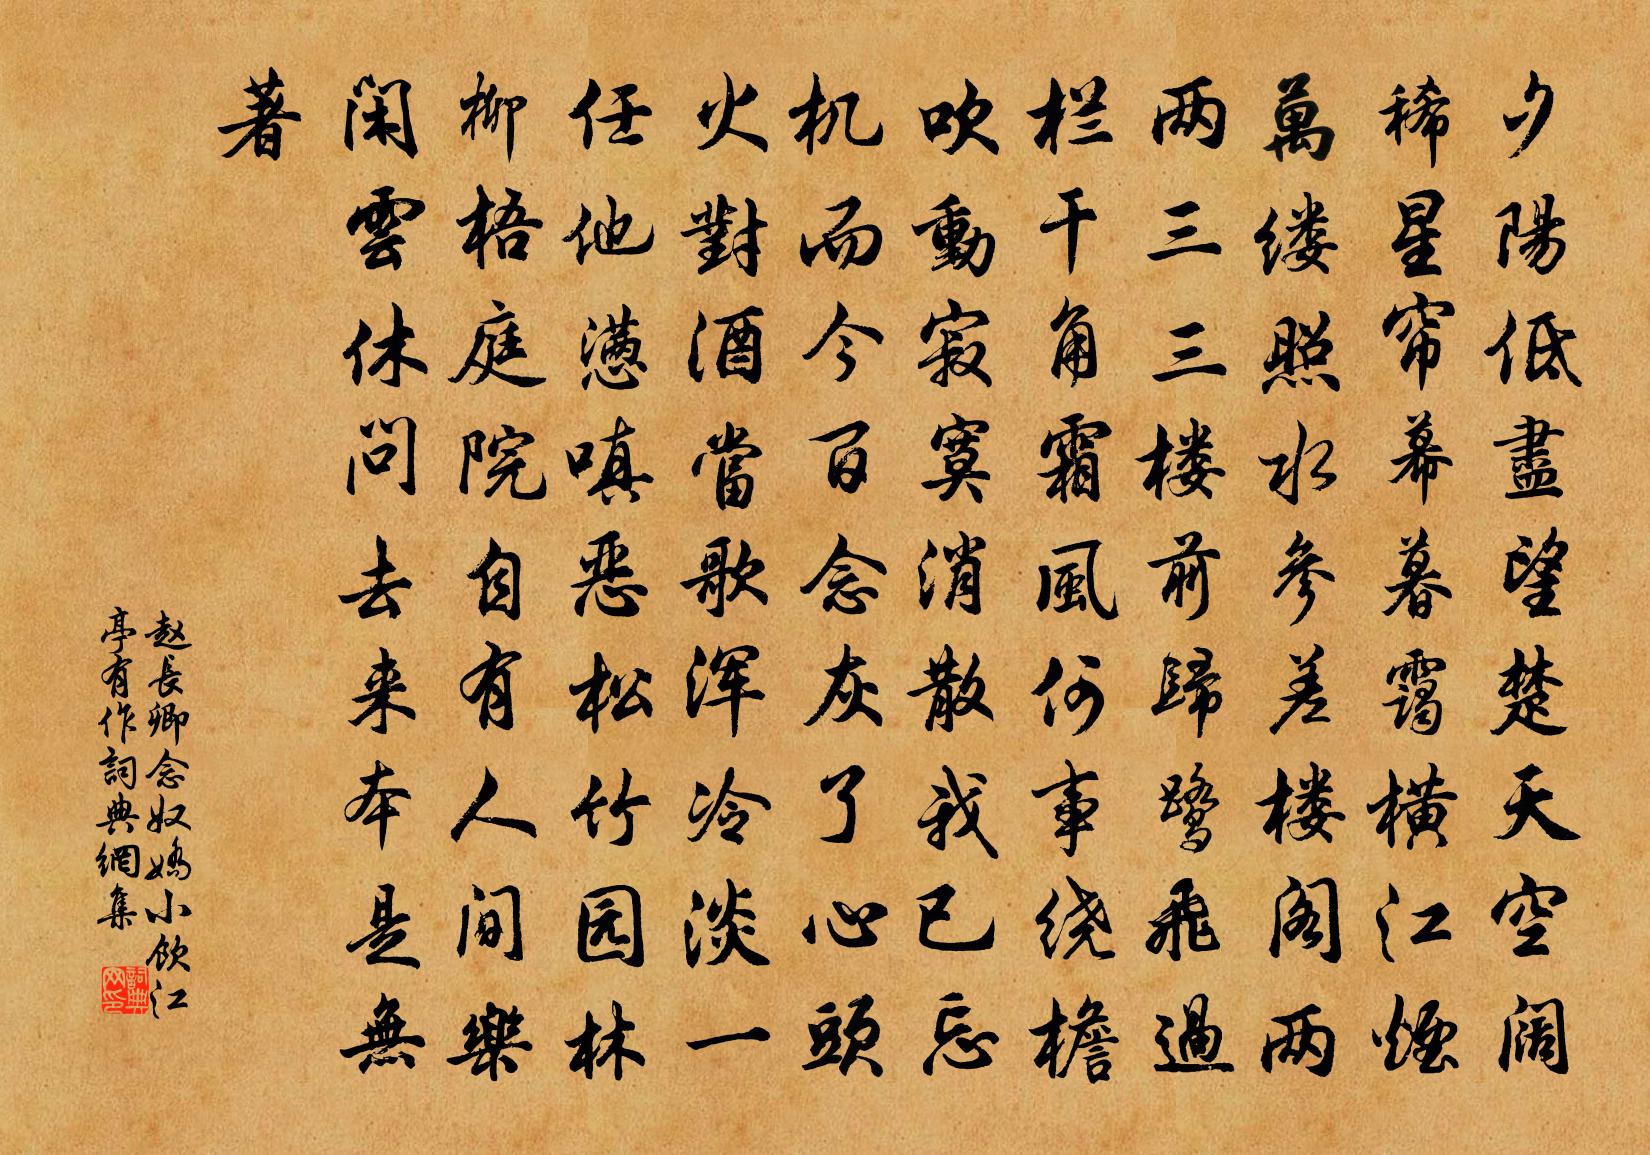 夕陽低盡望楚天空阔
稀星帘幕暮靄横江煙
萬缕照水參差楼阁两
两三三楼前歸鹭飛過
栏干角霜風何事绕檐
吹動寂寞消散我已忘
机而今百念灰了心頭
火對酒當歌浑冷淡一
任他懑嗔恶松竹园林
柳梧庭院自有人间樂
闲雲休问去来本是無
著
赵長卿念奴嬌小飲江
亭有作詞典網集
詞典网印